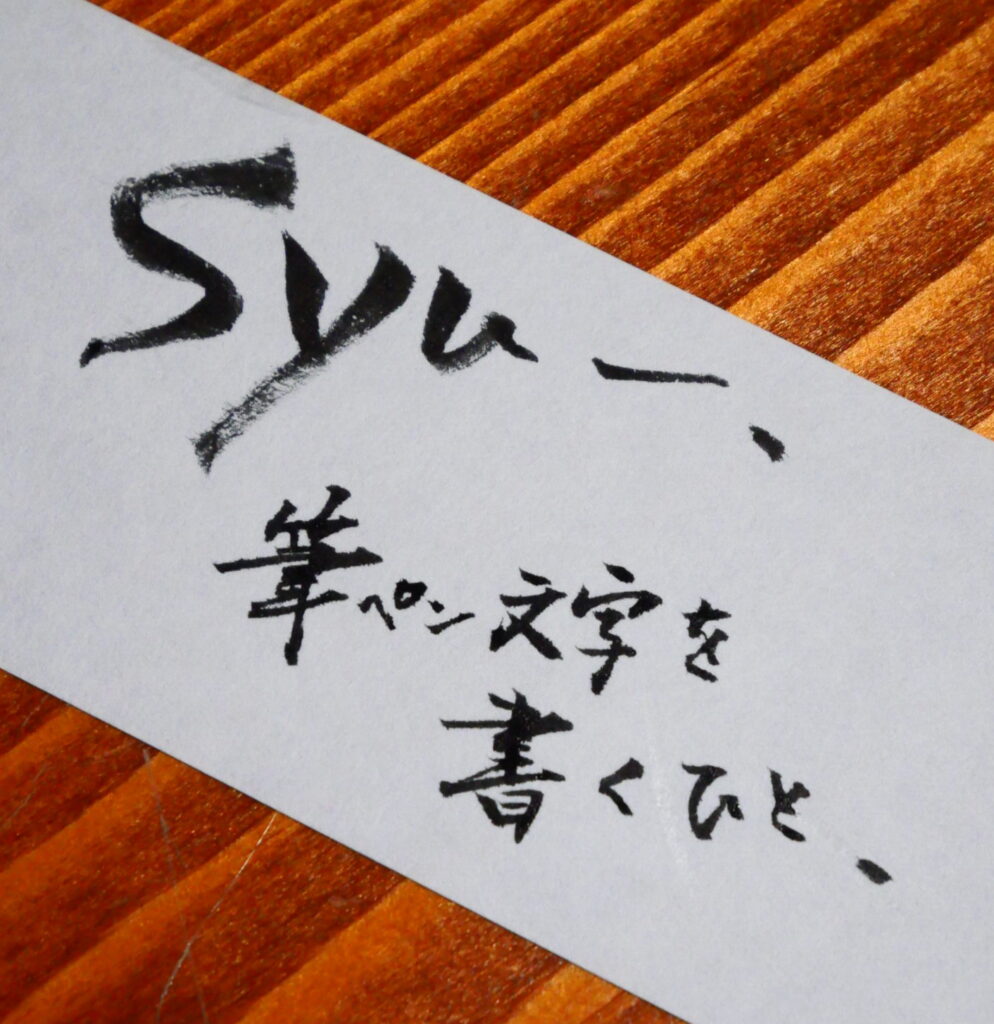 Syuー、
筆ペン文字を
書くひと、